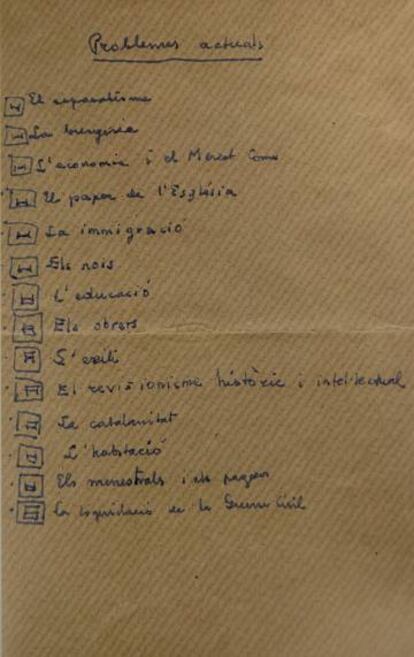 Problemes actuals
I El separatisme
I La burgesia
I L'economia i el Mercat Comú
II El paper de l'Església
I La immigració
I Els nois
II L'educació
Els obrers
II L'exili
II El revisionisme històric i intel·lectual
II La catalanitat
I L'habitació
Els menestrals i els pagesos
III La liquidació de la Guerra Civil